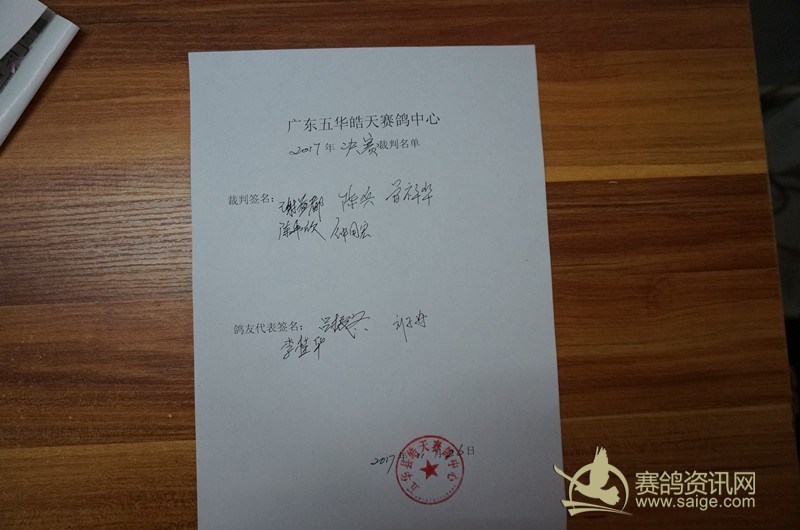 广东五华皓天赛鸽中心
2017年 决赛 裁判名单
裁判签名： 陈兵 曾祥华
钟国宏
鸽友代表签名： 吕振兴
李碧华
2017年 26日
五华县皓天赛鸽中心
赛鸽资讯网
www.saige.com